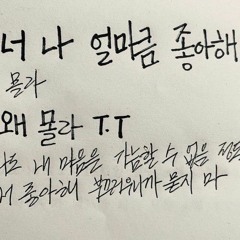 너 나 얼마큼 좋아해
몰라
왜 몰라 T.T
나도 내 마음을 가늠할 수 없을 정도
좋아해 부끄러우니까 묻지 마